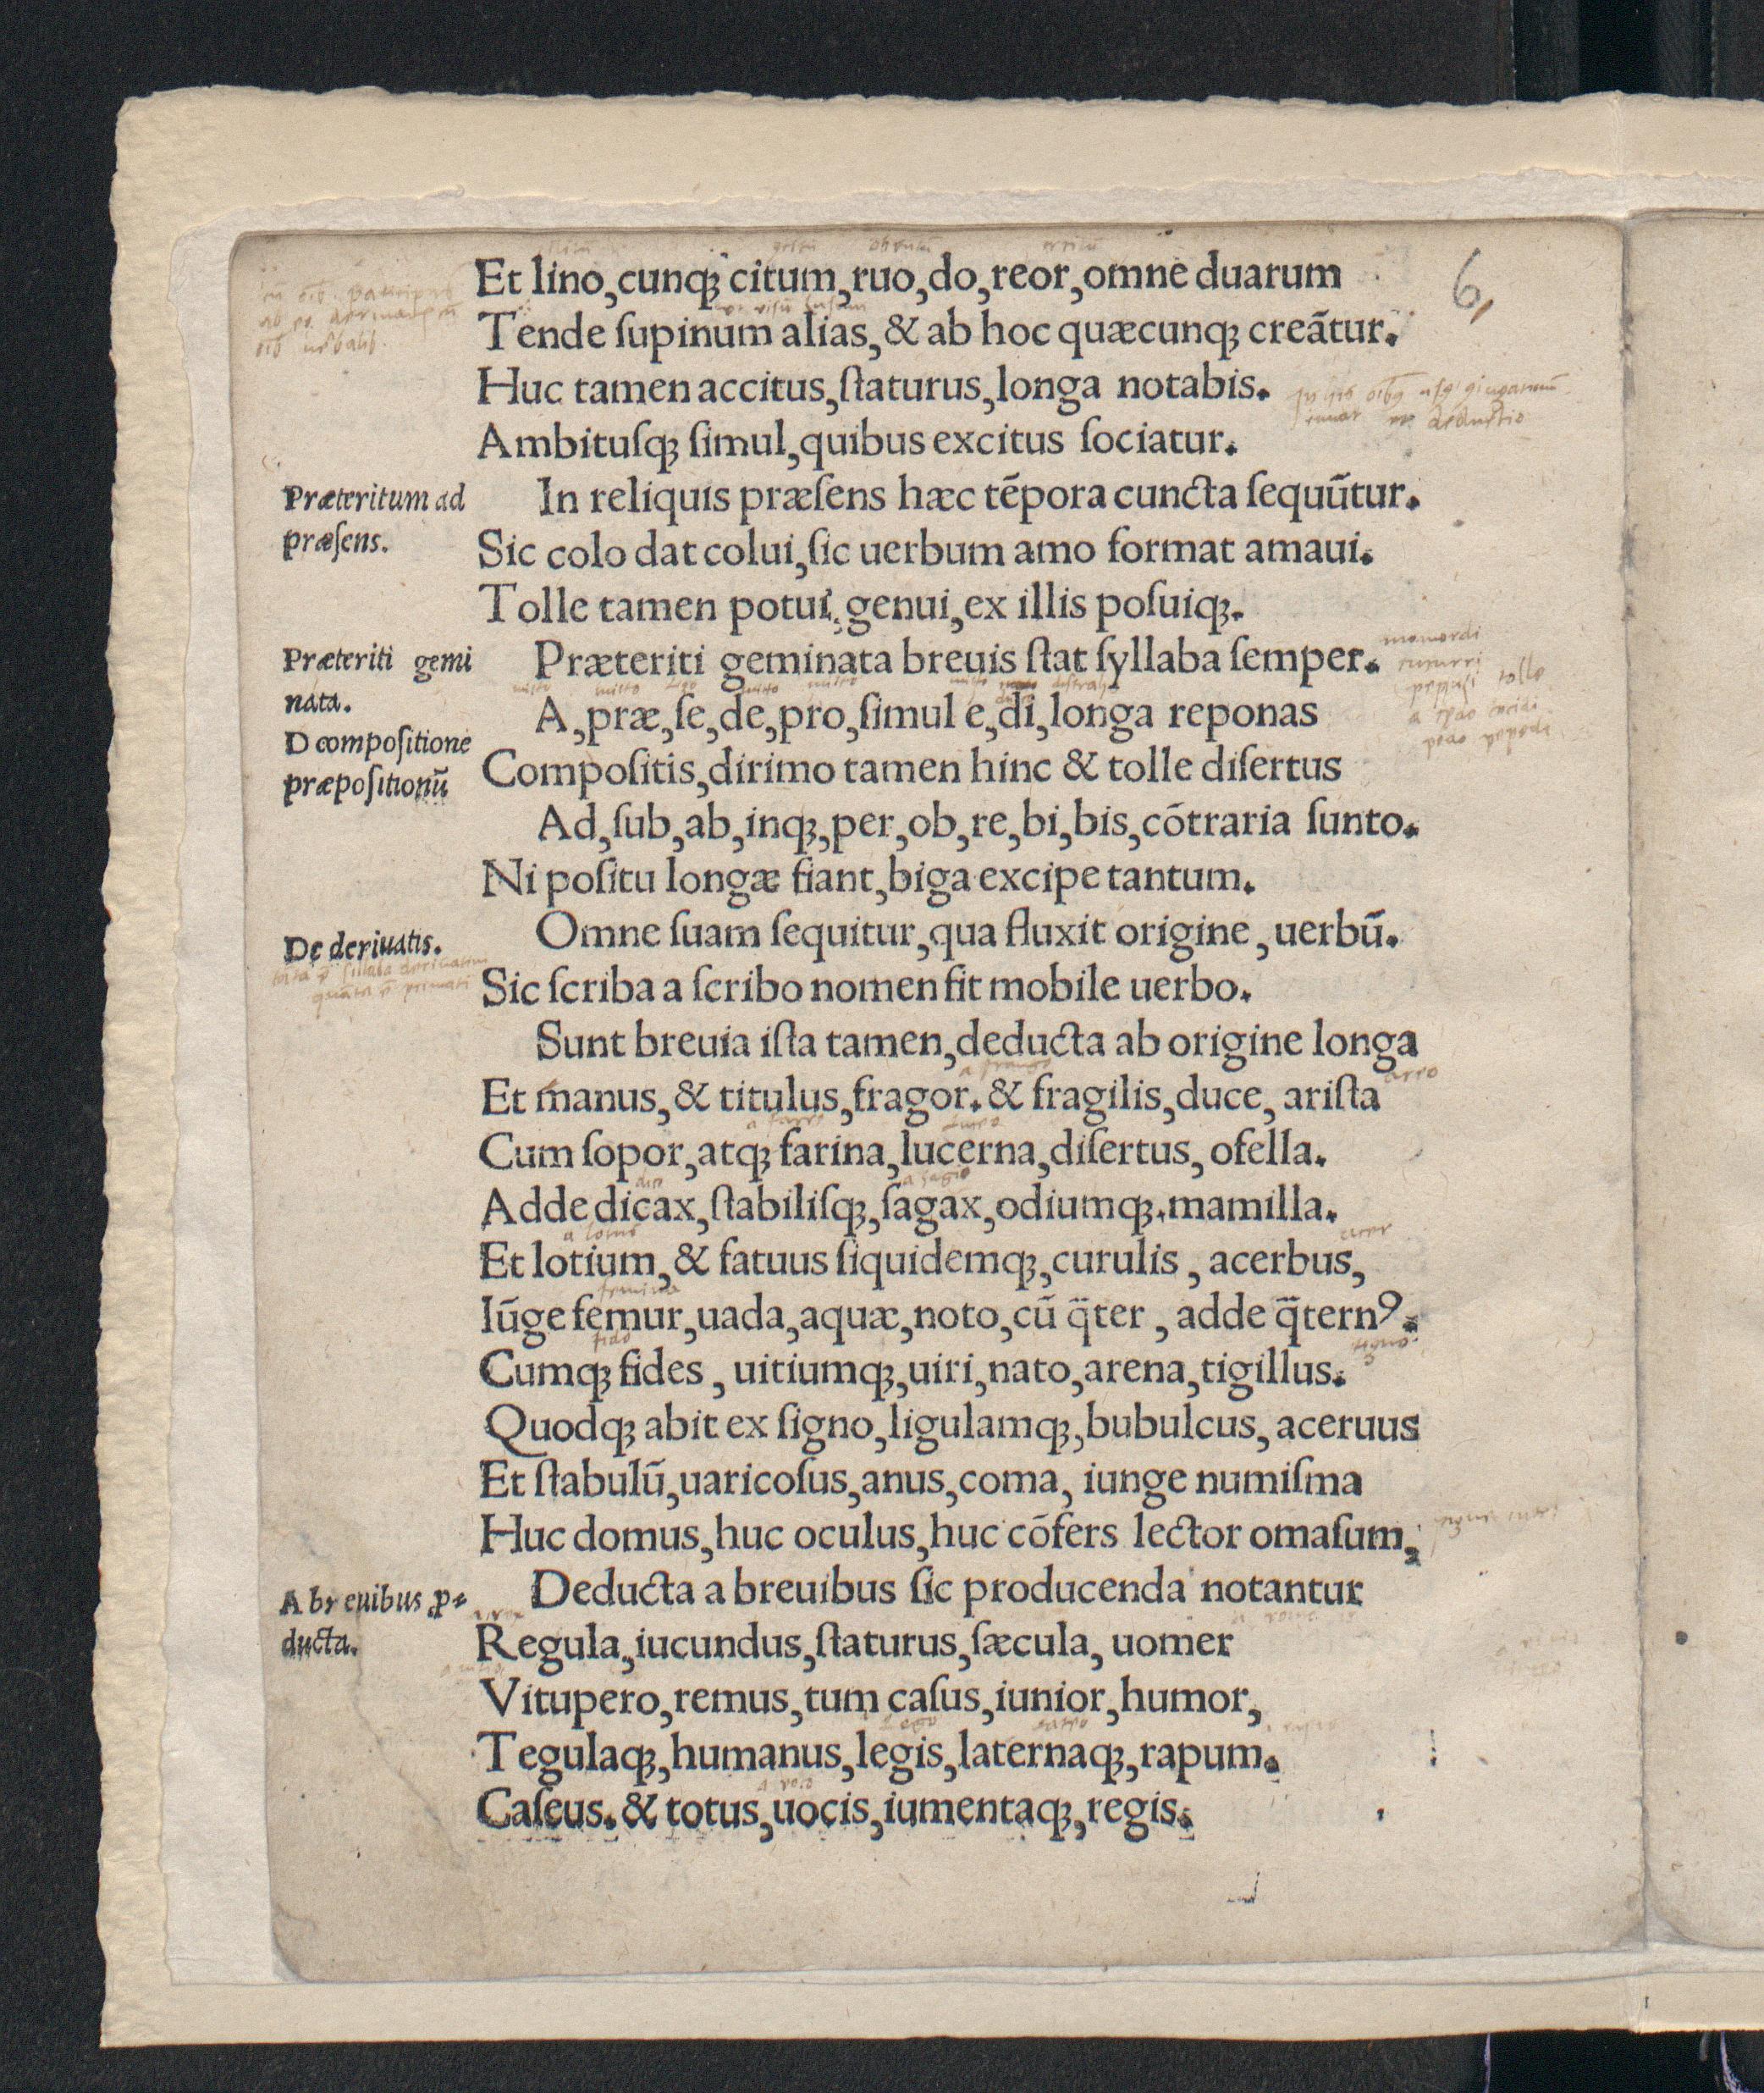 6,
Et lino,cunq; citum,ruo,do,reor,omne duarum
Tende ſupinum alias,& ab hoc quæcunq; creãtur.
Huc tamen accitus,ſtaturus,longa notabis.
Ambituſq; ſimul,quibus excitus ſociatur.
Præteritum ad
præſens.
In reliquis præſens hæc tẽpora cuncta ſequũtur.
Sic colo dat colui,ſic uerbum amo format amaui.
Tolle tamen potui,genui,ex illis poſuiq;.
Præteriti gemi
nata.
Præteriti geminata breuis ſtat ſyllaba ſemper.
momordi
D compoſitione
præpoſitionũ
A,præ,ſe,de,pro,ſimul e,di,longa reponas
Compoſitis,dirimo tamen hinc & tolle diſertus
Ad,ſub,ab,inq;,per,ob,re,bi,bis,cõtraria ſunto.
Ni poſitu longæ fiant,biga excipe tantum.
De deriuatis.
Omne ſuam ſequitur,qua fluxit origine,uerbũ.
Sic ſcriba a ſcribo nomen fit mobile uerbo.
Sunt breuia iſta tamen,deducta ab origine longa
Et manus,& titulus,fragor.& fragilis,duce,ariſta
Cum ſopor,atq; farina,lucerna,diſertus,ofella.
Adde dicax,ſtabiliſq;,ſagax,odiumq;.mamilla.
Et lotium,& fatuus ſiquidemq;,curulis,acerbus,
Iũge femur,uada,aquæ,noto,cũ q̈ter,adde q̈ternꝰ.
fido
Cumq; fides,uitiumq;,uiri,nato,arena,tigillus.
Quodq; abit ex ſigno,ligulamq;,bubulcus,aceruus
Et ſtabulũ,uaricoſus,anus,coma,iunge numiſma
Huc domus,huc oculus,huc cõfers lector omaſum,
A breuibus ꝓ-
ducta.
Deducta a breuibus ſic producenda notantur
Regula,iucundus,ſtaturus,ſæcula,uomer
Vitupero,remus,tum caſus,iunior,humor,
Tegulaq;,humanus,legis,laternaq;,rapum.
Caſeus.& totus,uocis,iumentaq;,regis.